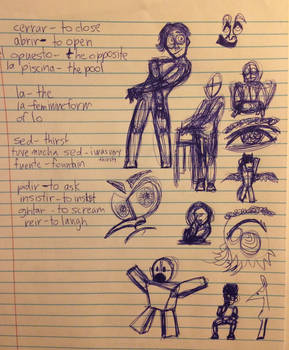 cerrar - to close
abrir - to open
opuesto - the opposite
la piscina - the pool
la - the
la - feminine form
of lo
sed - thirst
tuve mucha sed - i was very
thirsty
fuente - fountain
pedir - to ask
insistir - to insist
gritar - to scream
reir - to laugh